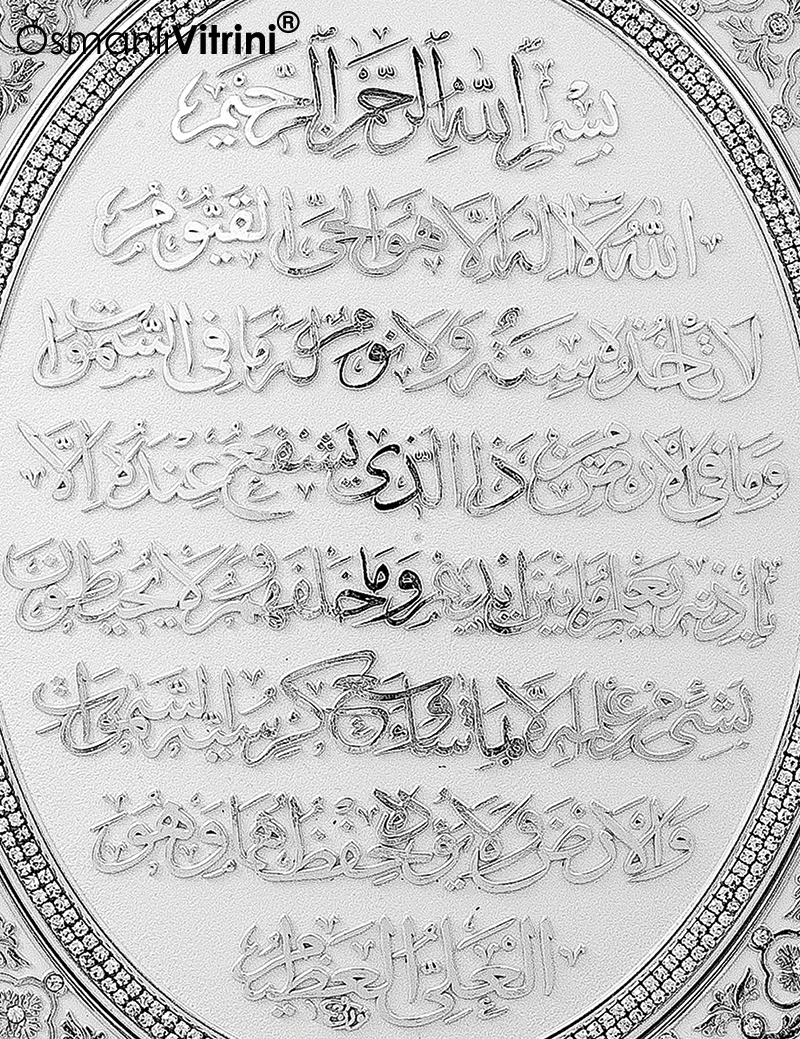 OsmanlıVitrini®
بسم الله الرحمن الرحيم
الله لا اله الا هو الحي القيوم
لا تأخذه سنة ولا نوم له ما في السموات
وما في الارض من ذا الذي يشفع عنده الا
بإذنه يعلم ما بين ايديهم وما خلفهم ولا يحيطون
بشئ من علمه الا بما شاء وسع كرسيه السموات
والارض ولا يؤده حفظهما وهو
العلي العظيم